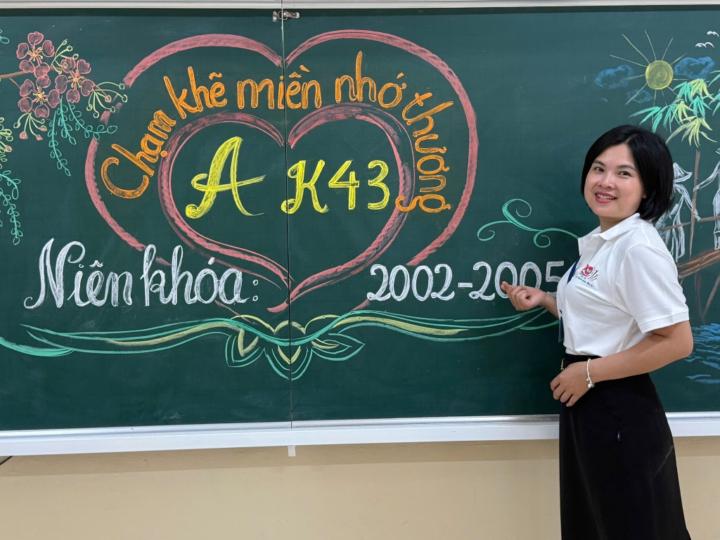 Chạm khẽ miền nhớ thương
A K43
Niên khóa: 2002-2005